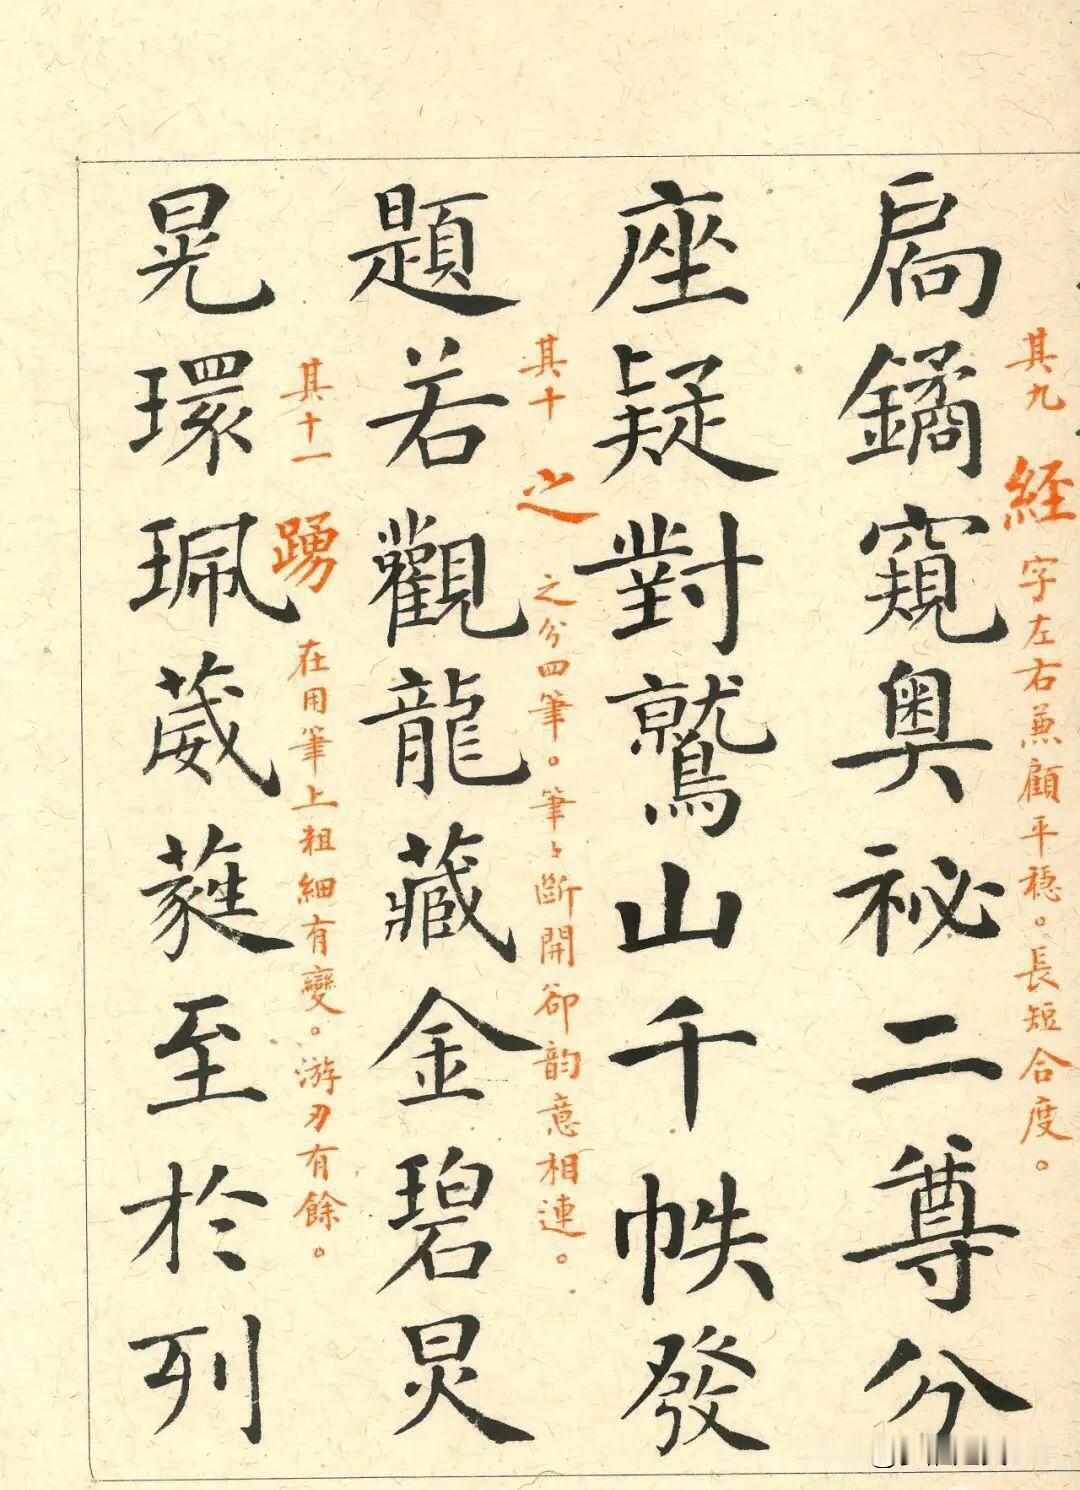 其九 經 字左右兼顧平穩。長短合度。
扄鐍窺奥祕二尊分
座疑對鷲山千帙發
其十 之 之分四筆。筆〻斷開卻韵意相連。
題若觀龍藏金碧炅
其十一 踴 在用筆上粗細有變。游刃有餘。
晃環珮葳蕤至於列